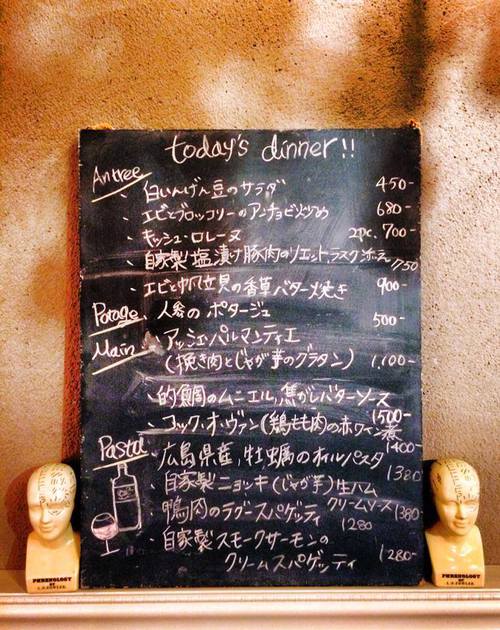 today's dinner!!
Antree
・白いんげん豆のサラダ 450-
・エビとブロッコリーのアンチョビ炒め 680-
・キッシュ・ロレーヌ 2pc. 700-
・自家製塩漬け豚肉のリエット 750
・エビと帆立貝の香草バター焼き 900-
Potage 人参のポタージュ 500-
Main ・アッシェ・パルマンティエ
(挽き肉とじゃが芋のグラタン) 1,100-
・的鯛のムニエル,焦がしバターソース
1500-
・コック・オ・ヴァン(鶏もも肉の赤ワイン煮
1400-
Pasta 広島県産,牡蠣のオイルパスタ 1380
・自家製ニョッキ(じゃが芋)生ハム
クリームソース 1380-
・鴨肉のラグースパゲッティ 1280
・自家製スモークサーモンの
クリームスパゲッティ 1280-
PHRENOLOGY
BY
L.N.FOWLER
PHRENOLOGY
BY
L.N.FOWLER